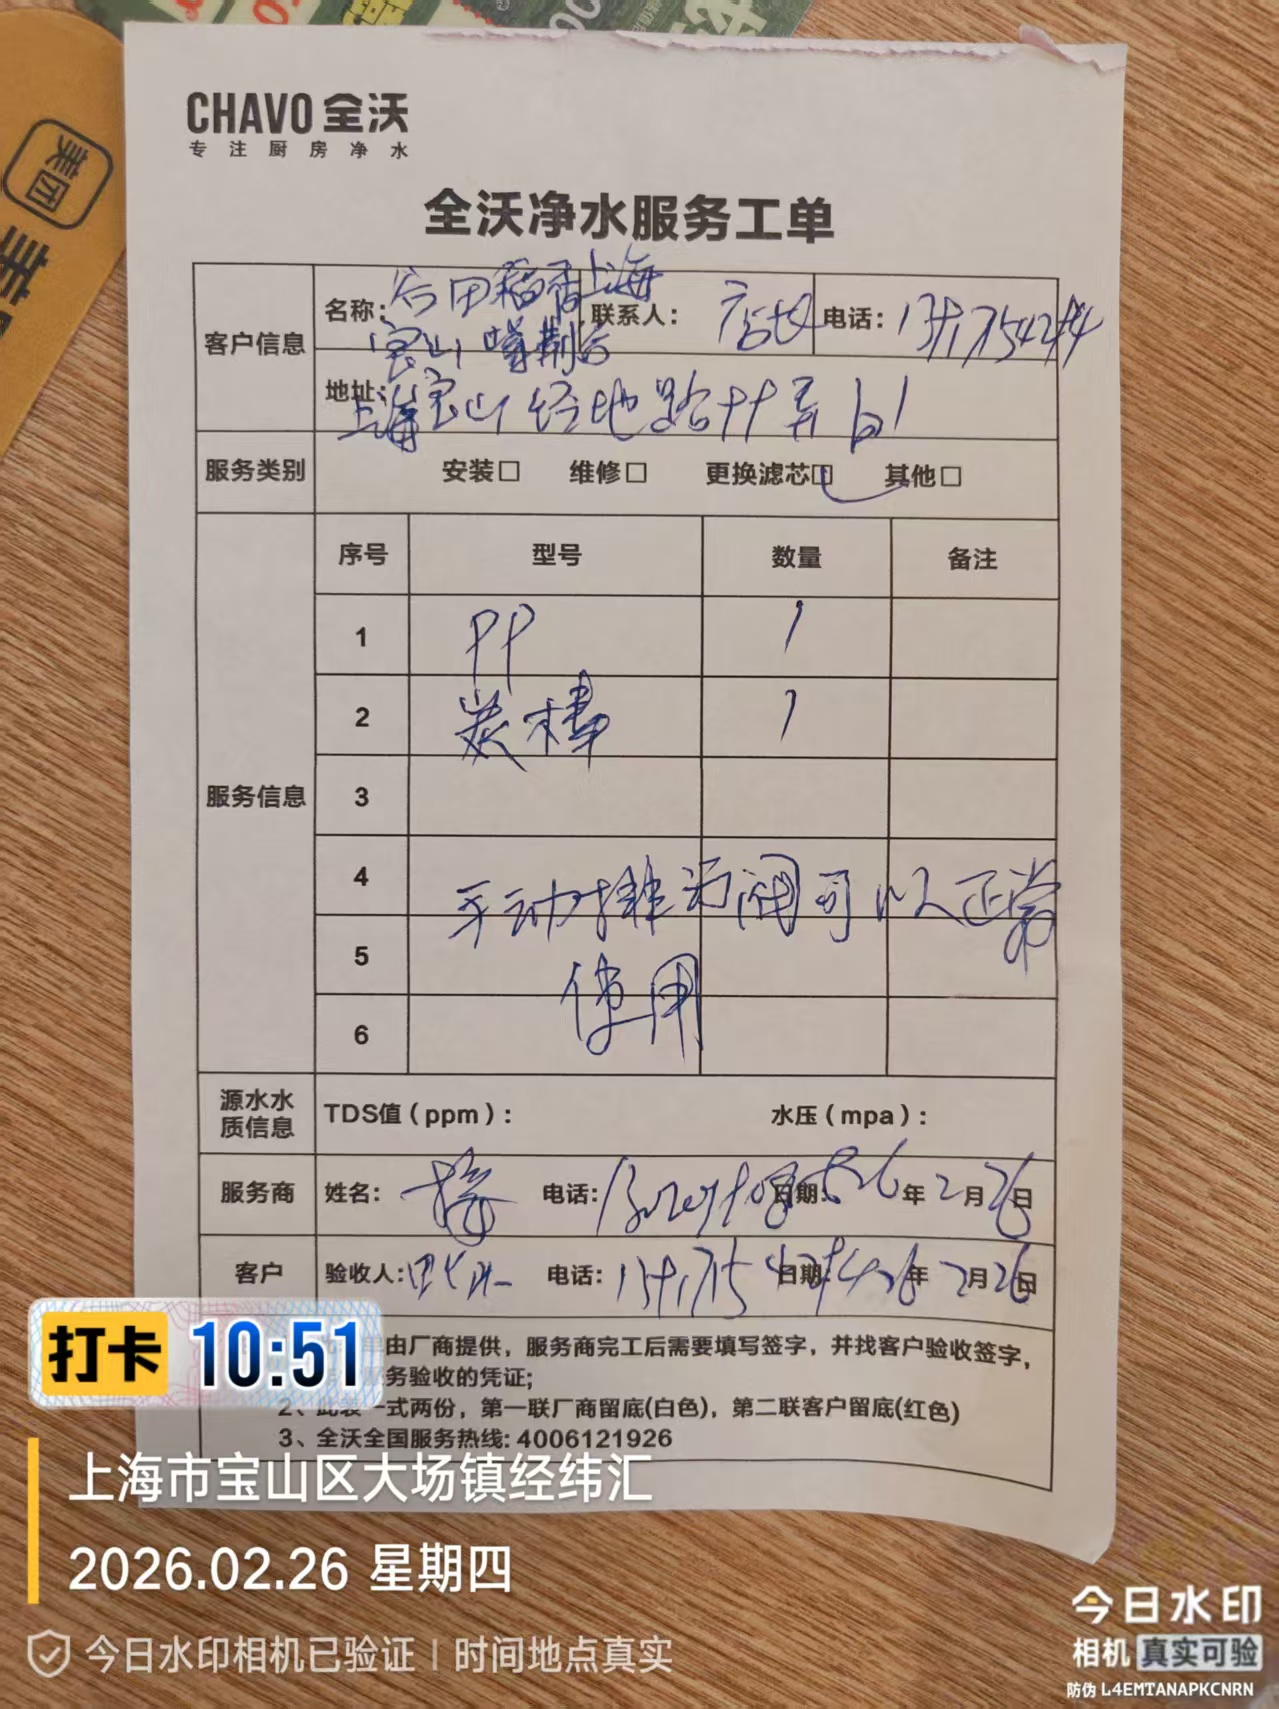 美团
CHAVO 全沃
专注厨房净水
全沃净水服务工单
客户信息 名称: 谷田稻香上海 联系人: 店长 电话:
宝山
地址: 上海宝山经地路 弄
服务类别 安装□ 维修□ 更换滤芯□ 其他□
服务信息 序号 型号 数量 备注
1 PP 1
2 炭棒 1
3
4 手动排污阀可以正常
5 使用
6
源水水质信息 TDS值(ppm): 水压(mpa):
服务商 姓名: 电话: 日期: 26年2月26日
客户 验收人: 电话: 日期: 26年2月26日
由厂商提供，服务商完工后需要填写签字，并找客户验收签字，
务验收的凭证;
2、 一式两份，第一联厂商留底(白色)，第二联客户留底(红色)
3、全沃全国服务热线: 4006121926
打卡 10:51
上海市宝山区大场镇经纬汇
2026.02.26 星期四
今日水印相机已验证 | 时间地点真实
今日水印
相机 真实可验
防伪 L4EMTANAPKCNRN